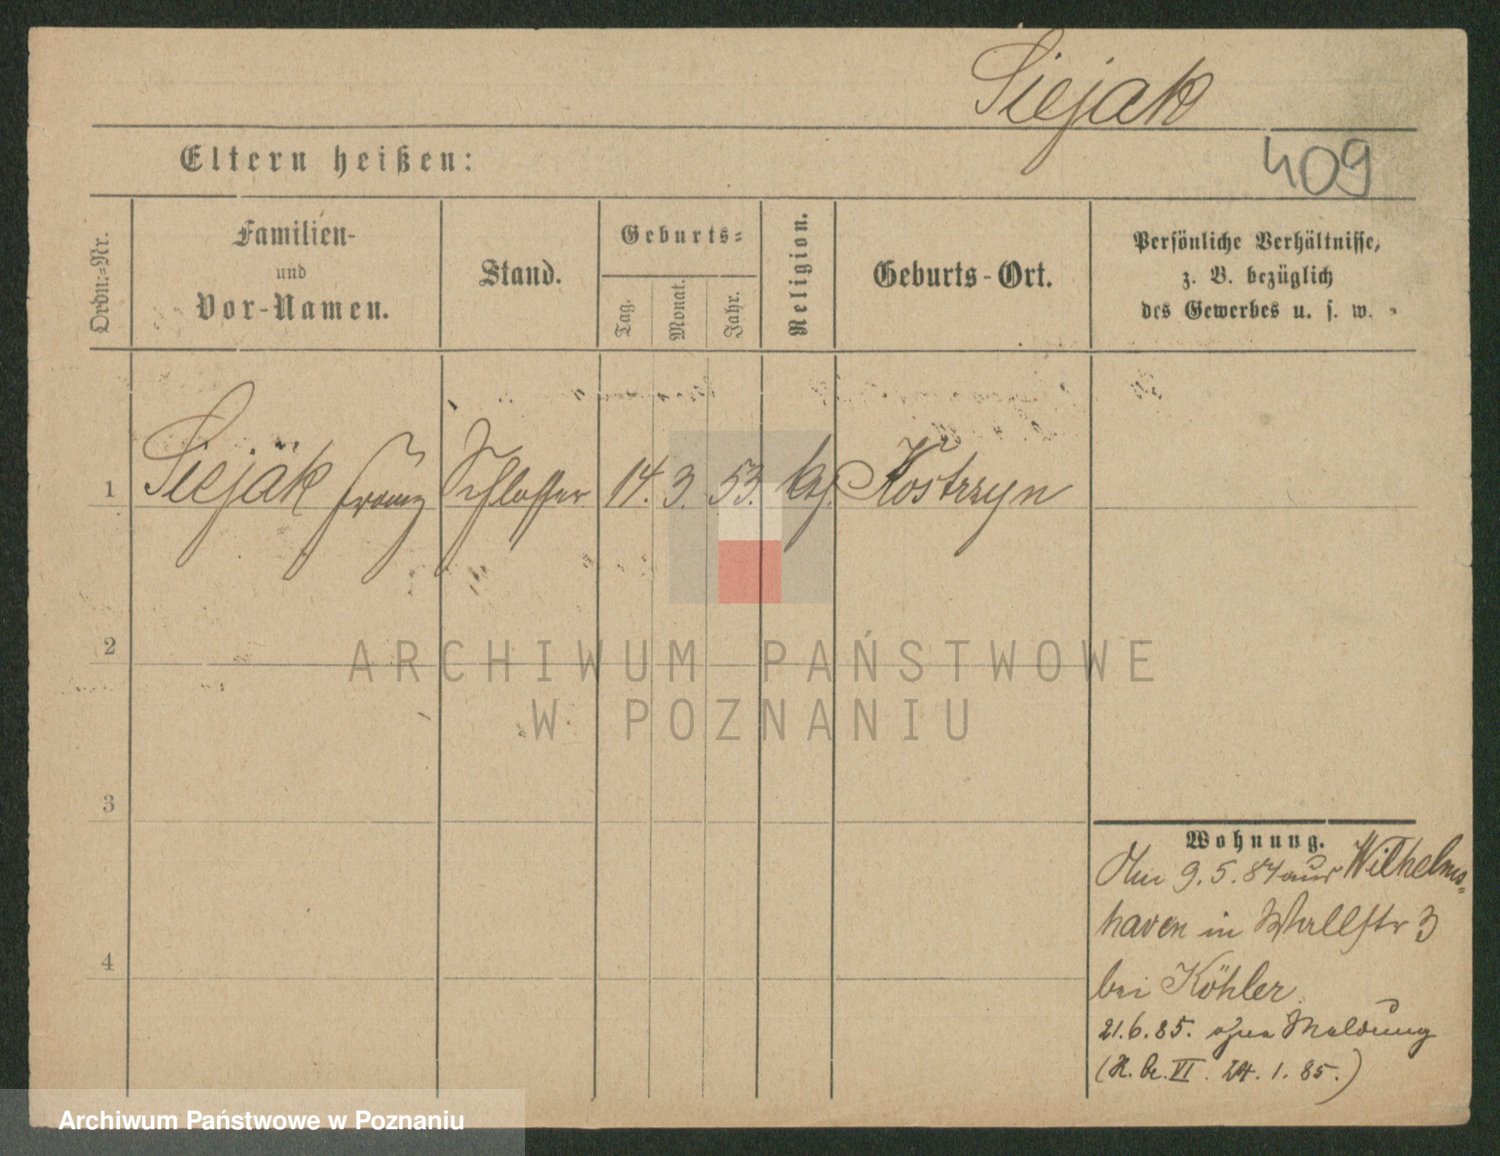 Siejak
Eltern heißen:
409
Ordn.=Nr.
Familien-
und
Vor-Namen.
Stand.
Geburts=
Tag.
Monat.
Jahr.
Religion.
Geburts-Ort.
Persönliche Verhältnisse,
z. B. bezüglich
des Gewerbes u. s. w.
1 Siejak Franz Schlosser 14. 3. 53. ktz. Kostrzyn
2
ARCHIWUM PAŃSTWOWE
W POZNANIU
3
4
Wohnung.
9.5.84 aus Wilhelms=
haven in Wallstr 3
bei Köhler
21.6.85. ohne Meldung
VI. 24.1.85.)
Archiwum Państwowe w Poznaniu